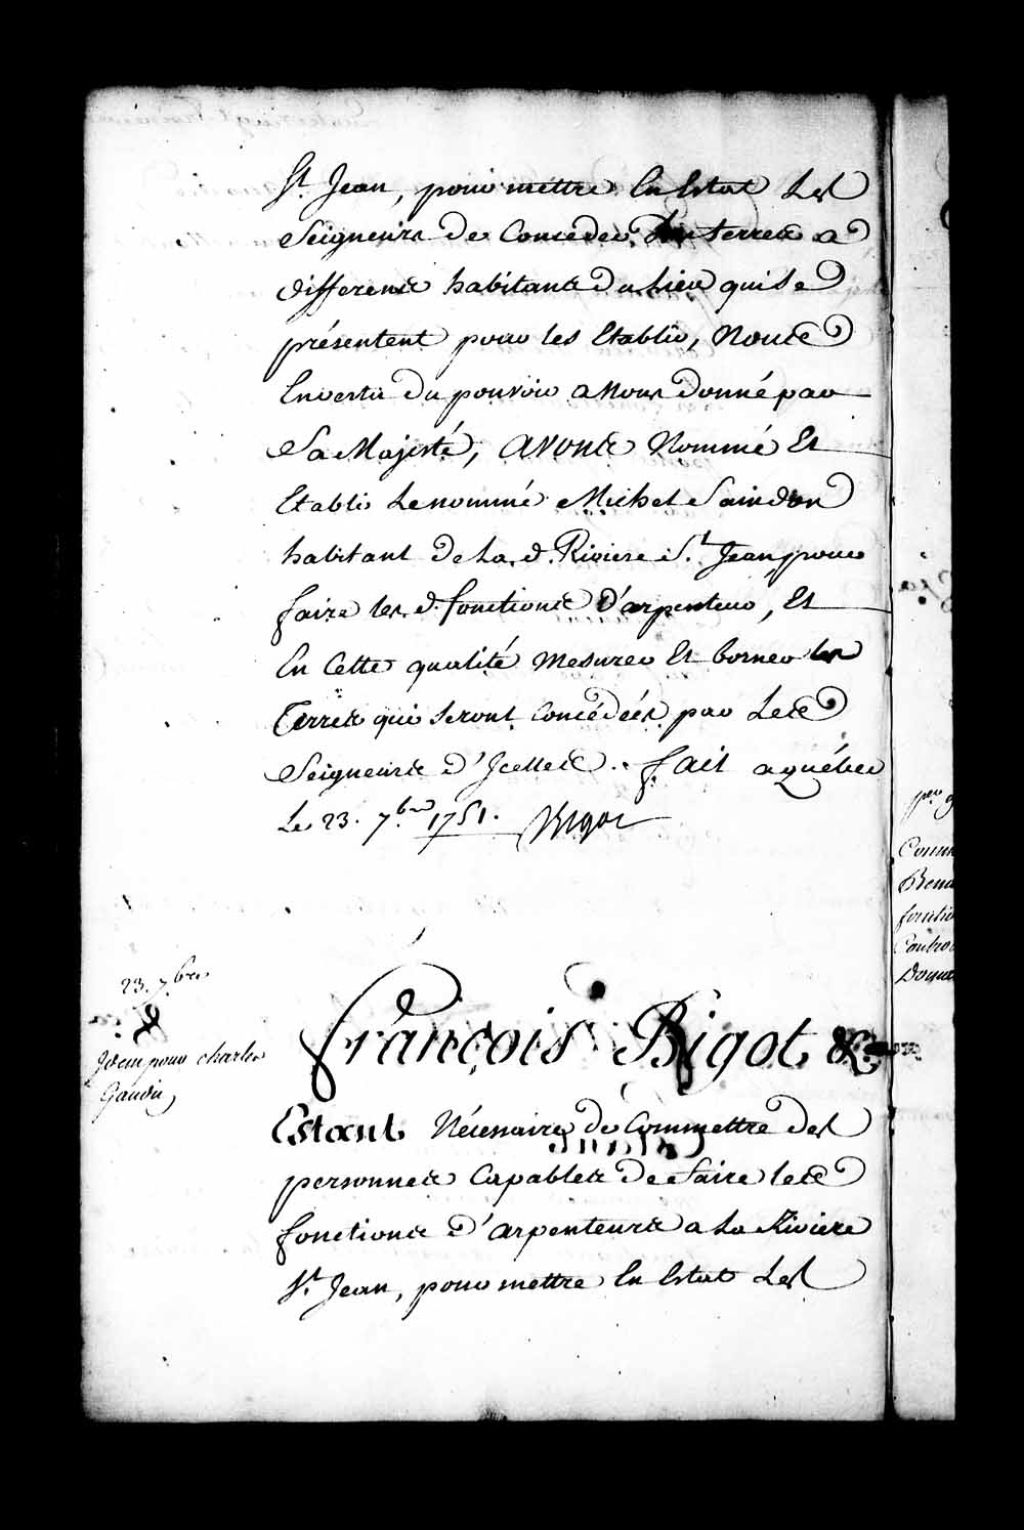 St. Jean, pour mettre En Estat Les
Seigneurs de Conceder des terres a
differents habitants du Lieu qui se
présentent pour les Etablir, Nous
En vertu du pouvoir a Nous donné par
Sa Majesté, avons Nommé Et
Etabli Le nommé Michel Saindon
habitant de La d. Riviere St. Jean pour
faire les d. fonctions d'arpenteur, Et
En Cette qualité Mesurer Et borner les
Terres qui seront Concédées par Les
Seigneurs d'Icelles. fait a québec
Le 23. 7bre 1751. Bigot
23. 7bre
Idem pour charles
Gaudin
françois Bigot &c.
Estant Nécessaire de Commettre des
personnes Capables de faire les
fonctions d'arpenteurs a La Riviere
St. Jean, pour mettre En Estat Les